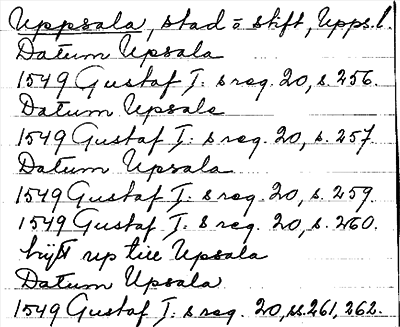 Uppsala, stad o stift, Upps.l.
Datum Upsala
1549 Gustaf I: s reg. 20, s. 256.
Datum Upsale
1549 Gustaf I: s reg. 20, s. 257
Datum Upsala
1549 Gustaf I: s reg. 20, s. 259.
1549 Gustaf I: s reg. 20, s. 260.
up till Upsala
Datum Upsala
1549 Gustaf I: s reg. 20, ss. 261, 262.